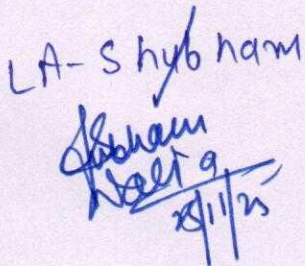 LA-Shubham
Shubham
Walia
28/11/25